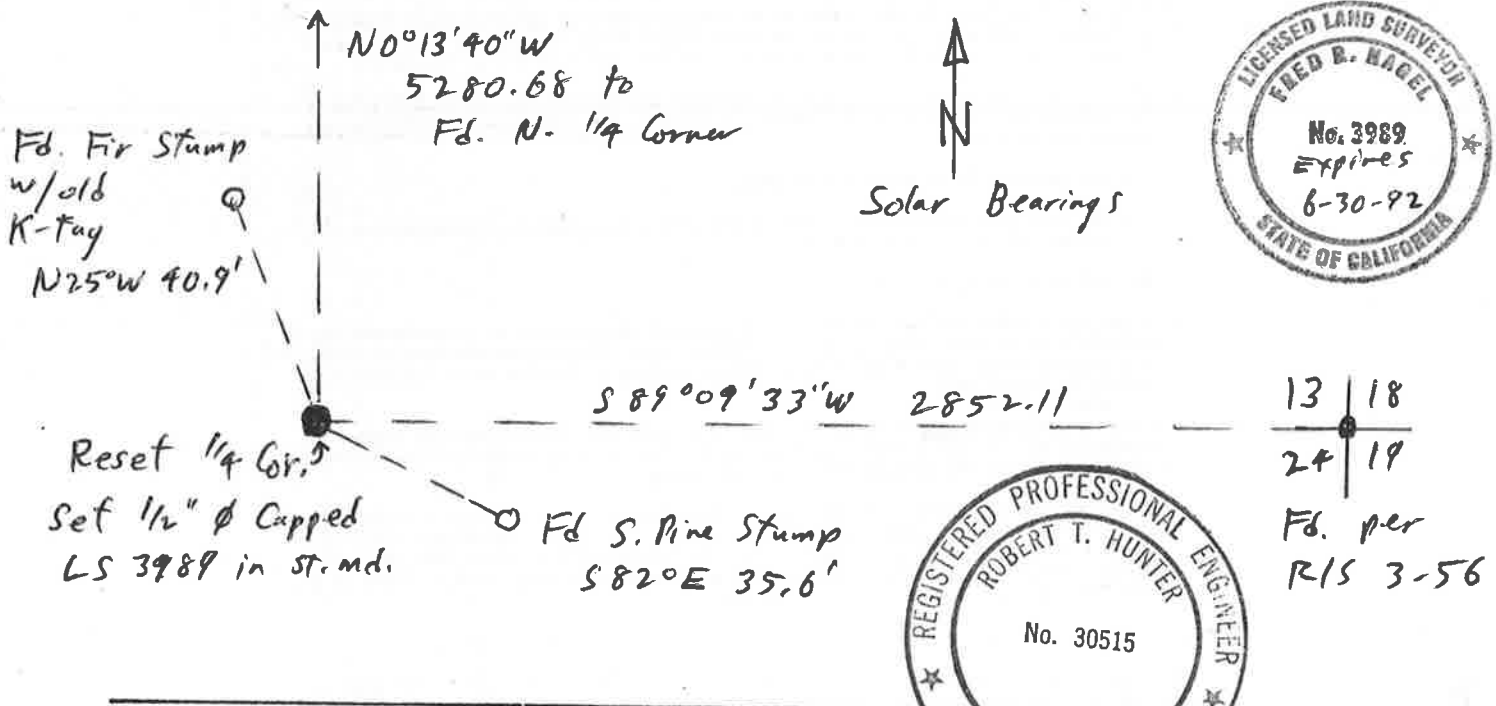 N0°13'40"W
5280.68 to
Fd. N. 1/4 Corner
Fd. Fir Stump
w/old
K-tag
N25°W 40.9'
N
Solar Bearings
LICENSED LAND SURVEYOR
FRED R. NAGEL
No. 3989
Expires
6-30-92
STATE OF CALIFORNIA
S89°09'33"W 2852.11
13 18
24 19
Fd. per
R/S 3-56
Reset 1/4 Cor.
Set 1/2" ø Capped
LS 3989 in st. md.
Fd S. Pine Stump
S82°E 35.6'
REGISTERED PROFESSIONAL ENGINEER
ROBERT T. HUNTER
No. 30515